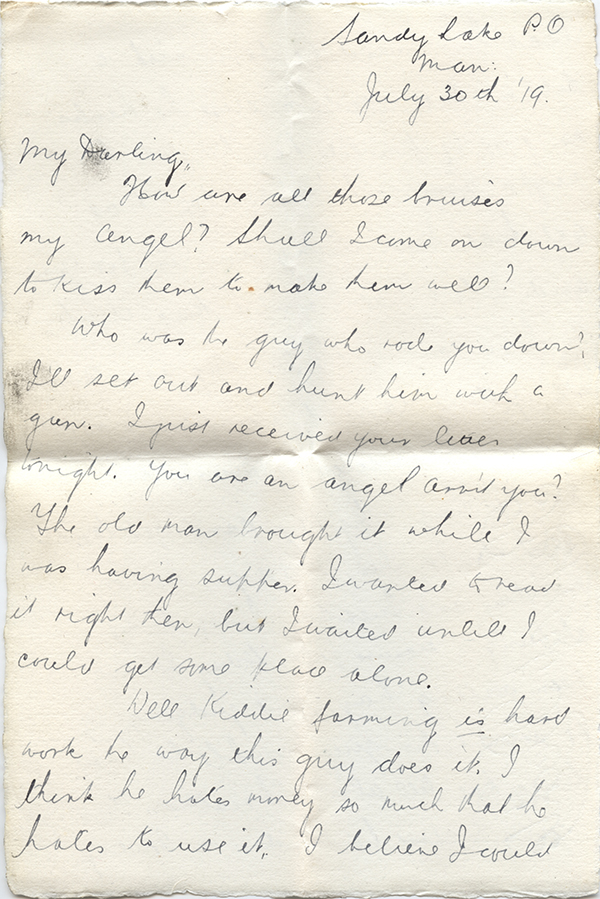 Sandy Lake P.O
Man:
July 30th '19.
My Darling,,
How are all those bruises
my angel? Shall I come on down
to kiss them to make them well?
Who was the guy who rode you down?
I'll set out and hunt him with a
gun. I just received your letter
tonight. You are an angel arn't you?
The old man brought it while I
was having supper. I wanted to read
it right then, but I waited untill I
could get some place alone.
Well Kiddie farming is hard
work the way this guy does it. I
think he hates money so much that he
hates to use it. I believe I could